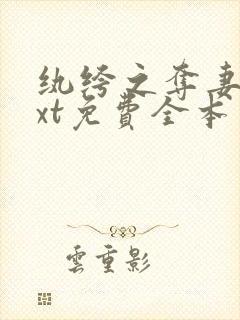 纨绔之夺妻
xt免費全本
雲重影